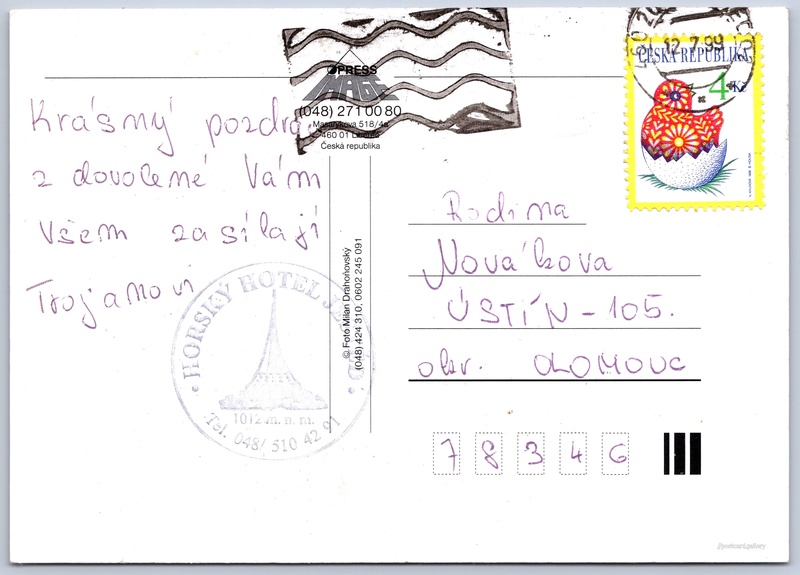 Krásný pozdrav
z dovolené Vám
Všem zasílají
Trojanovi
PRESS
IMAGE
(048) 271 00 80
Masarykova 518/4a
460 01 Liberec
Česká republika
© Foto Milan Drahoňovský
(048) 424 310, 0602 245 091
HORSKÝ HOTEL JEŠTĚD
1012 m. n. m.
Tel. 048/ 510 42 91
12.7.99
ČESKÁ REPUBLIKA
4 Kč
Rodina
Novákova
ÚSTÍN - 105.
okr. OLOMOUC
7 8 3 4 6